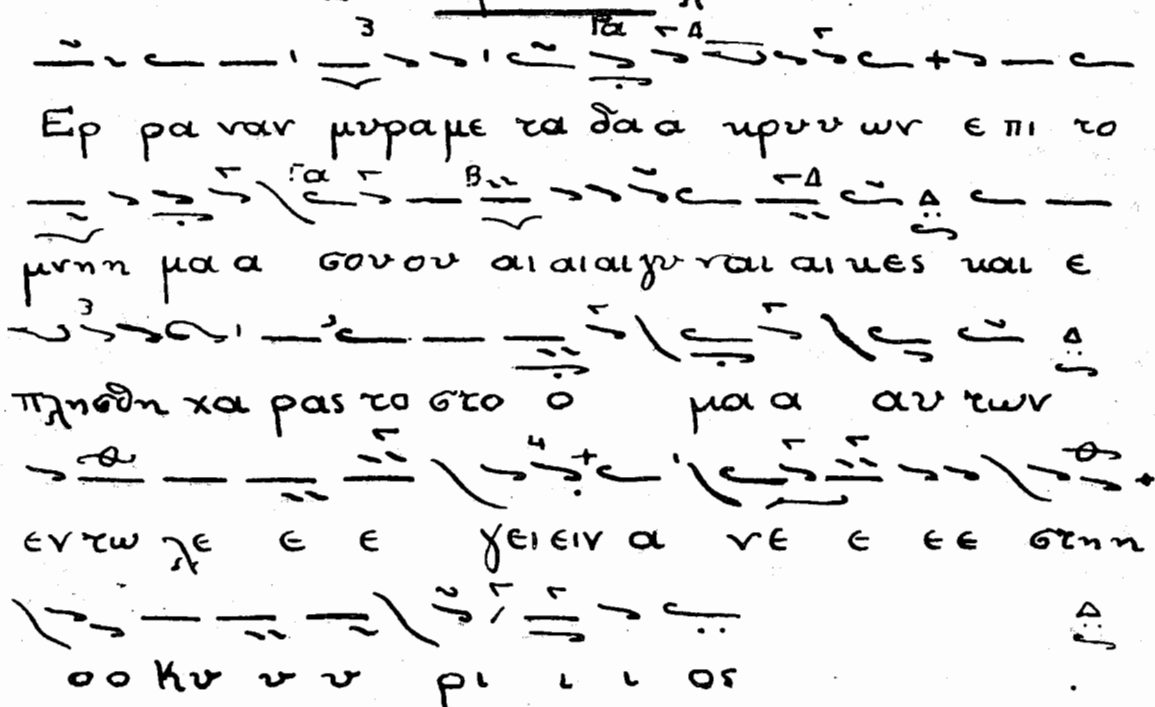 Ερ ρα ναν μυραμε τα δα α κρυυ ων ε πι το
μνηη μα α σουου αι αι αι γυ ναι αι κες και ε
πλησθη χα ρας το στο ο μα α αυ των
εν τω λε ε ε γει ειν α νε ε ε ε στηη
ο ο Κυ υ υ ρι ι ι ος